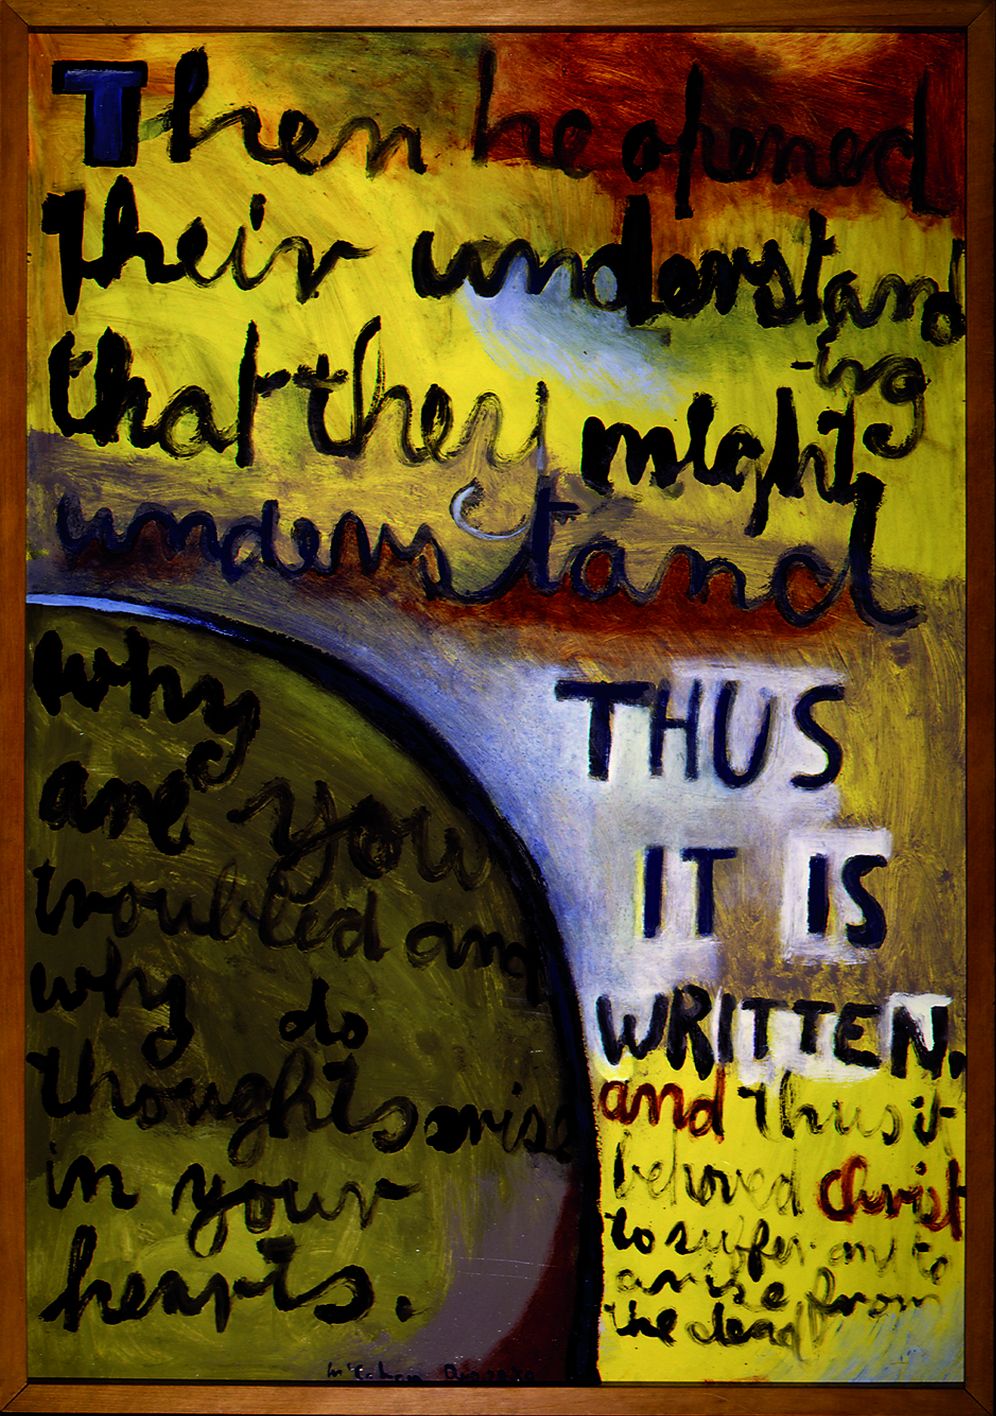 Then he opened
their understand
-ing
that they might
understand
why
are you
troubled and
why do
thoughts arise
in your
hearts.
THUS
IT IS
WRITTEN.
and thus it
behoved christ
to suffer and to
arise from
the dead